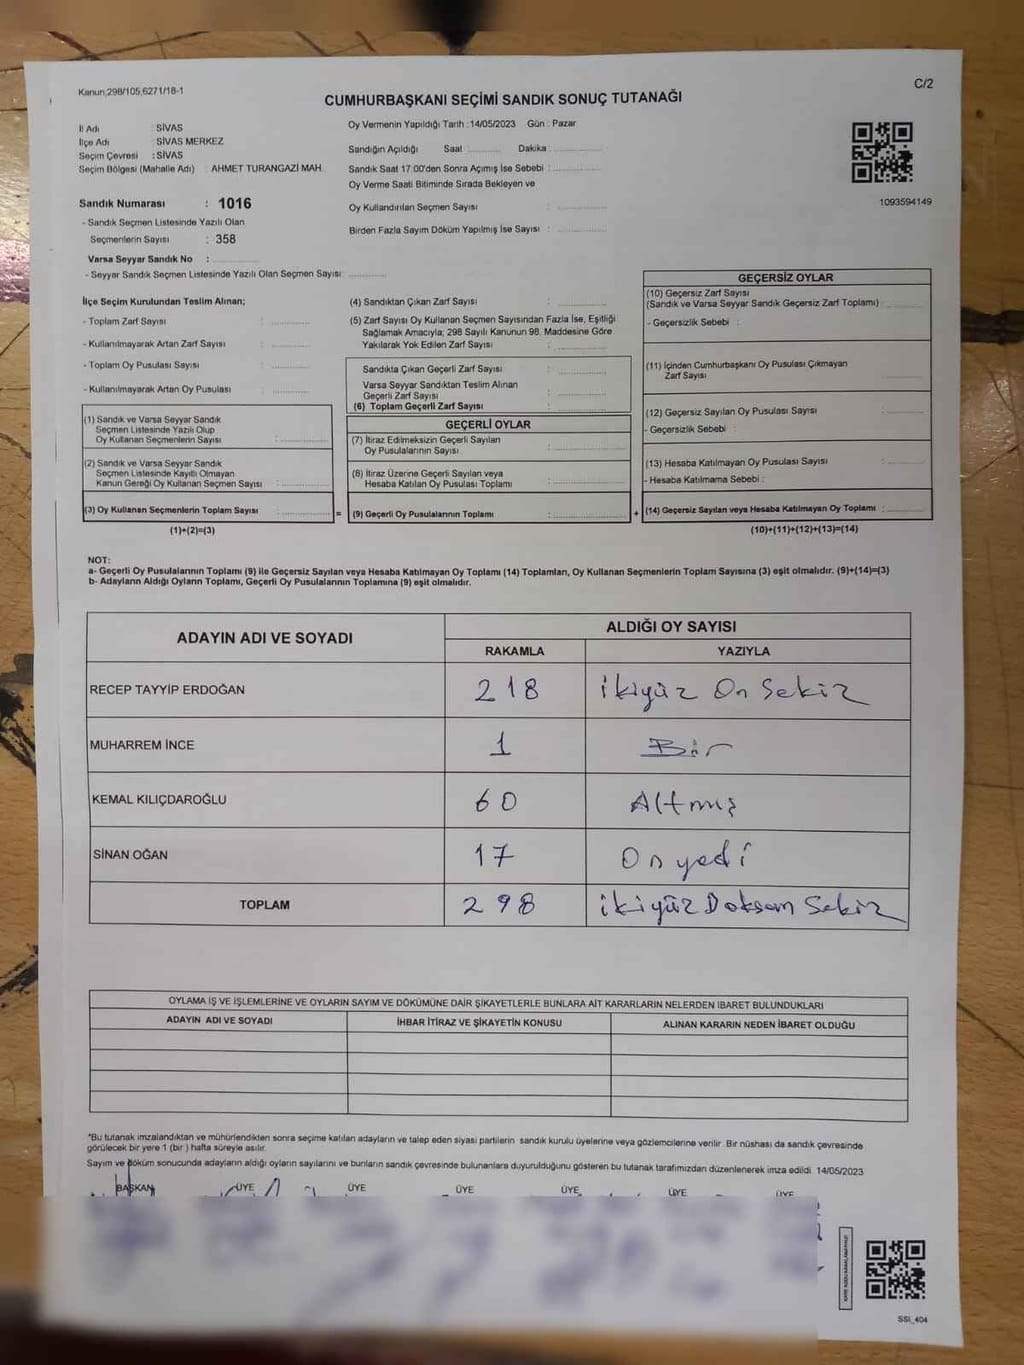 Kanun,298/105,6271/18-1
C/2
CUMHURBAŞKANI SEÇİMİ SANDIK SONUÇ TUTANAĞI
İl Adı : SİVAS
İlçe Adı : SİVAS MERKEZ
Seçim Çevresi : SİVAS
Seçim Bölgesi (Mahalle Adı) : AHMET TURANGAZİ MAH.
Sandık Numarası : 1016
- Sandık Seçmen Listesinde Yazılı Olan
Seçmenlerin Sayısı : 358
Varsa Seyyar Sandık No :
- Seyyar Sandık Seçmen Listesinde Yazılı Olan Seçmen Sayısı:
Oy Vermenin Yapıldığı Tarih : 14/05/2023 Gün : Pazar
Sandığın Açıldığı Saat Dakika :
Sandık Saat 17.00'den Sonra Açımış İse Sebebi :
Oy Verme Saati Bitiminde Sırada Bekleyen ve
Oy Kullandırılan Seçmen Sayısı :
Birden Fazla Sayım Döküm Yapılmış İse Sayısı :
1093594149
İlçe Seçim Kurulundan Teslim Alınan;
- Toplam Zarf Sayısı :
- Kullanılmayarak Artan Zarf Sayısı :
- Toplam Oy Pusulası Sayısı :
- Kullanılmayarak Artan Oy Pusulası :
(1) Sandık ve Varsa Seyyar Sandık
Seçmen Listesinde Yazılı Olup
Oy Kullanan Seçmenlerin Sayısı :
(2) Sandık ve Varsa Seyyar Sandık
Seçmen Listesinde Kayıtlı Olmayan
Kanun Gereği Oy Kullanan Seçmen Sayısı :
(3) Oy Kullanan Seçmenlerin Toplam Sayısı :
(1)+(2)=(3)
(4) Sandıktan Çıkan Zarf Sayısı :
(5) Zarf Sayısı Oy Kullanan Seçmen Sayısından Fazla İse, Eşitliği
Sağlamak Amacıyla; 298 Sayılı Kanunun 98. Maddesine Göre
Yakılarak Yok Edilen Zarf Sayısı :
Sandıkta Çıkan Geçerli Zarf Sayısı :
Varsa Seyyar Sandıktan Teslim Alınan
Geçerli Zarf Sayısı :
(6) Toplam Geçerli Zarf Sayısı :
GEÇERLİ OYLAR
(7) İtiraz Edilmeksizin Geçerli Sayılan
Oy Pusulalarının Sayısı :
(8) İtiraz Üzerine Geçerli Sayılan veya
Hesaba Katılan Oy Pusulası Toplamı :
= (9) Geçerli Oy Pusulalarının Toplamı : +
GEÇERSİZ OYLAR
(10) Geçersiz Zarf Sayısı
(Sandık ve Varsa Seyyar Sandık Geçersiz Zarf Toplamı) :
- Geçersizlik Sebebi :
(11) İçinden Cumhurbaşkanı Oy Pusulası Çıkmayan
Zarf Sayısı :
(12) Geçersiz Sayılan Oy Pusulası Sayısı :
- Geçersizlik Sebebi :
(13) Hesaba Katılmayan Oy Pusulası Sayısı :
- Hesaba Katılmama Sebebi :
(14) Geçersiz Sayılan veya Hesaba Katılmayan Oy Toplamı :
(10)+(11)+(12)+(13)=(14)
NOT:
a- Geçerli Oy Pusulalarının Toplamı (9) ile Geçersiz Sayılan veya Hesaba Katılmayan Oy Toplamı (14) Toplamları, Oy Kullanan Seçmenlerin Toplam Sayısına (3) eşit olmalıdır. (9)+(14)=(3)
b- Adayların Aldığı Oyların Toplamı, Geçerli Oy Pusulalarının Toplamına (9) eşit olmalıdır.
ADAYIN ADI VE SOYADI
ALDIĞI OY SAYISI
RAKAMLA YAZIYLA
RECEP TAYYİP ERDOĞAN 218 ikiyüz On Sekiz
MUHARREM İNCE 1 Bir
KEMAL KILIÇDAROĞLU 60 Altmış
SİNAN OĞAN 17 On yedi
TOPLAM 298 ikiyüz Doksan Sekiz
OYLAMA İŞ VE İŞLEMLERİNE VE OYLARIN SAYIM VE DÖKÜMÜNE DAİR ŞİKAYETLERLE BUNLARA AİT KARARLARIN NELERDEN İBARET BULUNDUKLARI
ADAYIN ADI VE SOYADI İHBAR İTİRAZ VE ŞİKAYETİN KONUSU ALINAN KARARIN NEDEN İBARET OLDUĞU
*Bu tutanak imzalandıktan ve mühürlendikten sonra seçime katılan adayların ve talep eden siyasi partilerin sandık kurulu üyelerine veya gözlemcilerine verilir. Bir nüshası da sandık çevresinde
görülecek bir yere 1 (bir) hafta süreyle asılır.
Sayım ve döküm sonucunda adayların aldığı oyların sayılarını ve bunların sandık çevresinde bulunanlara duyurulduğunu gösteren bu tutanak tarafımızdan düzenlenerek imza edildi. 14/05/2023
BAŞKAN ÜYE ÜYE ÜYE ÜYE ÜYE ÜYE
SSİ_404